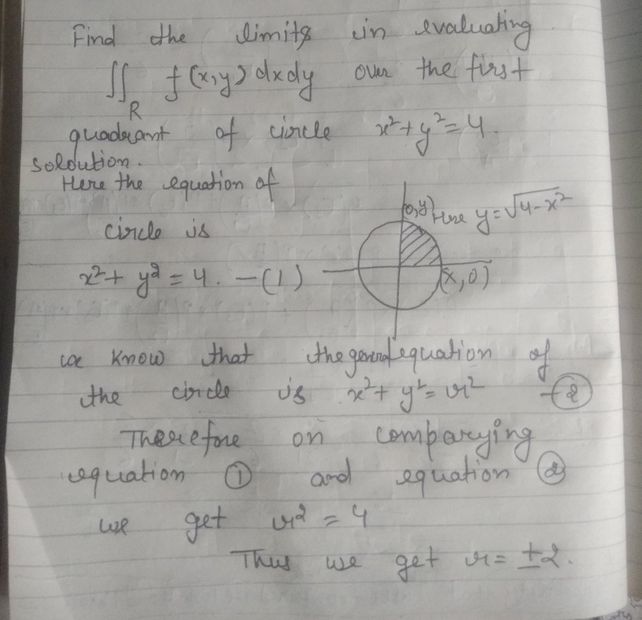 Find the limits in evaluating
∬_R f(x,y) dxdy over the first
quadrant of circle x²+y²=4.
soloution.
Here the equation of
circle is
(0,y) Here y=√4-x²
x²+y²=4. -(1)
(x,0)
we know that the general equation of
the circle is x²+y²=r² -②
Therefore on comparying
equation ① and equation ②
we get r²=4
Thus we get r=±2.